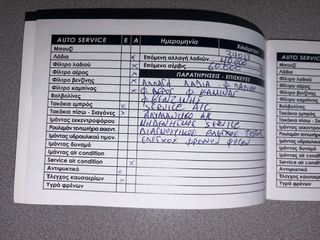 AUTO SERVICE Ε Α Ημερομηνία Χιλιόμετρα
Μπουζί
Λάδια x Επόμενη αλλαγή λαδιών
Φίλτρο λαδιού x Επόμενο σέρβις
Φίλτρο αέρος x ΠΑΡΑΤΗΡΗΣΕΙΣ - ΕΠΙΣΚΕΥΕΣ
Φίλτρο βενζίνης x ΑΛΛΑΓΗ ΛΑΔΙΑ Φ ΛΑΔΙΟΥ
Φίλτρο καμπίνας x Φ ΑΕΡΟΣ Φ ΚΑΜΠΙΝΑΣ
Βαλβολίνες Φ ΒΕΝΖΙΝΗΣ
Τακάκια εμπρός x SERVICE A/C
Τακάκια πίσω - Σιαγόνες x
Ιμάντας εκκεντροφόρου ΜΗΔΕΝΙΣΜΟΣ SERVICE
Ρουλεμάν τεντωτήρα εκκεντ. ΔΙΑΓΝΩΣΤΙΚΟΣ ΕΛΕΓΧΟΣ
Ιμάντας υδραυλικού τιμον. ΕΛΕΓΧΟΣ ΦΡΕΝΩΝ
Ιμάντας δυναμό
Ιμάντας air condition
Service air condition x
Αντιψυκτικό x
Έλεγχος καυσαερίων x
Υγρά φρένων